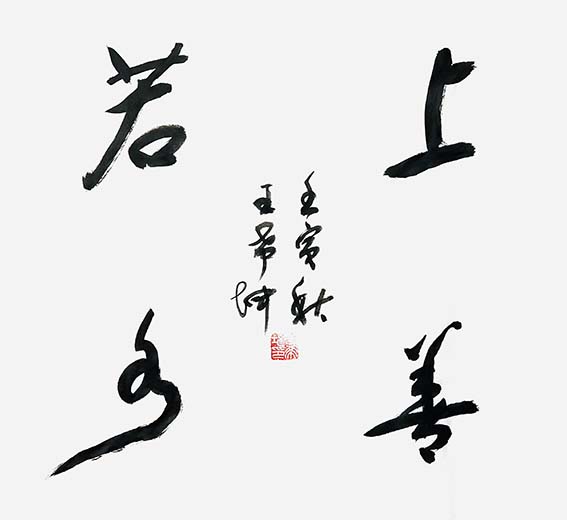 上善
若水
壬寅秋
王希坤